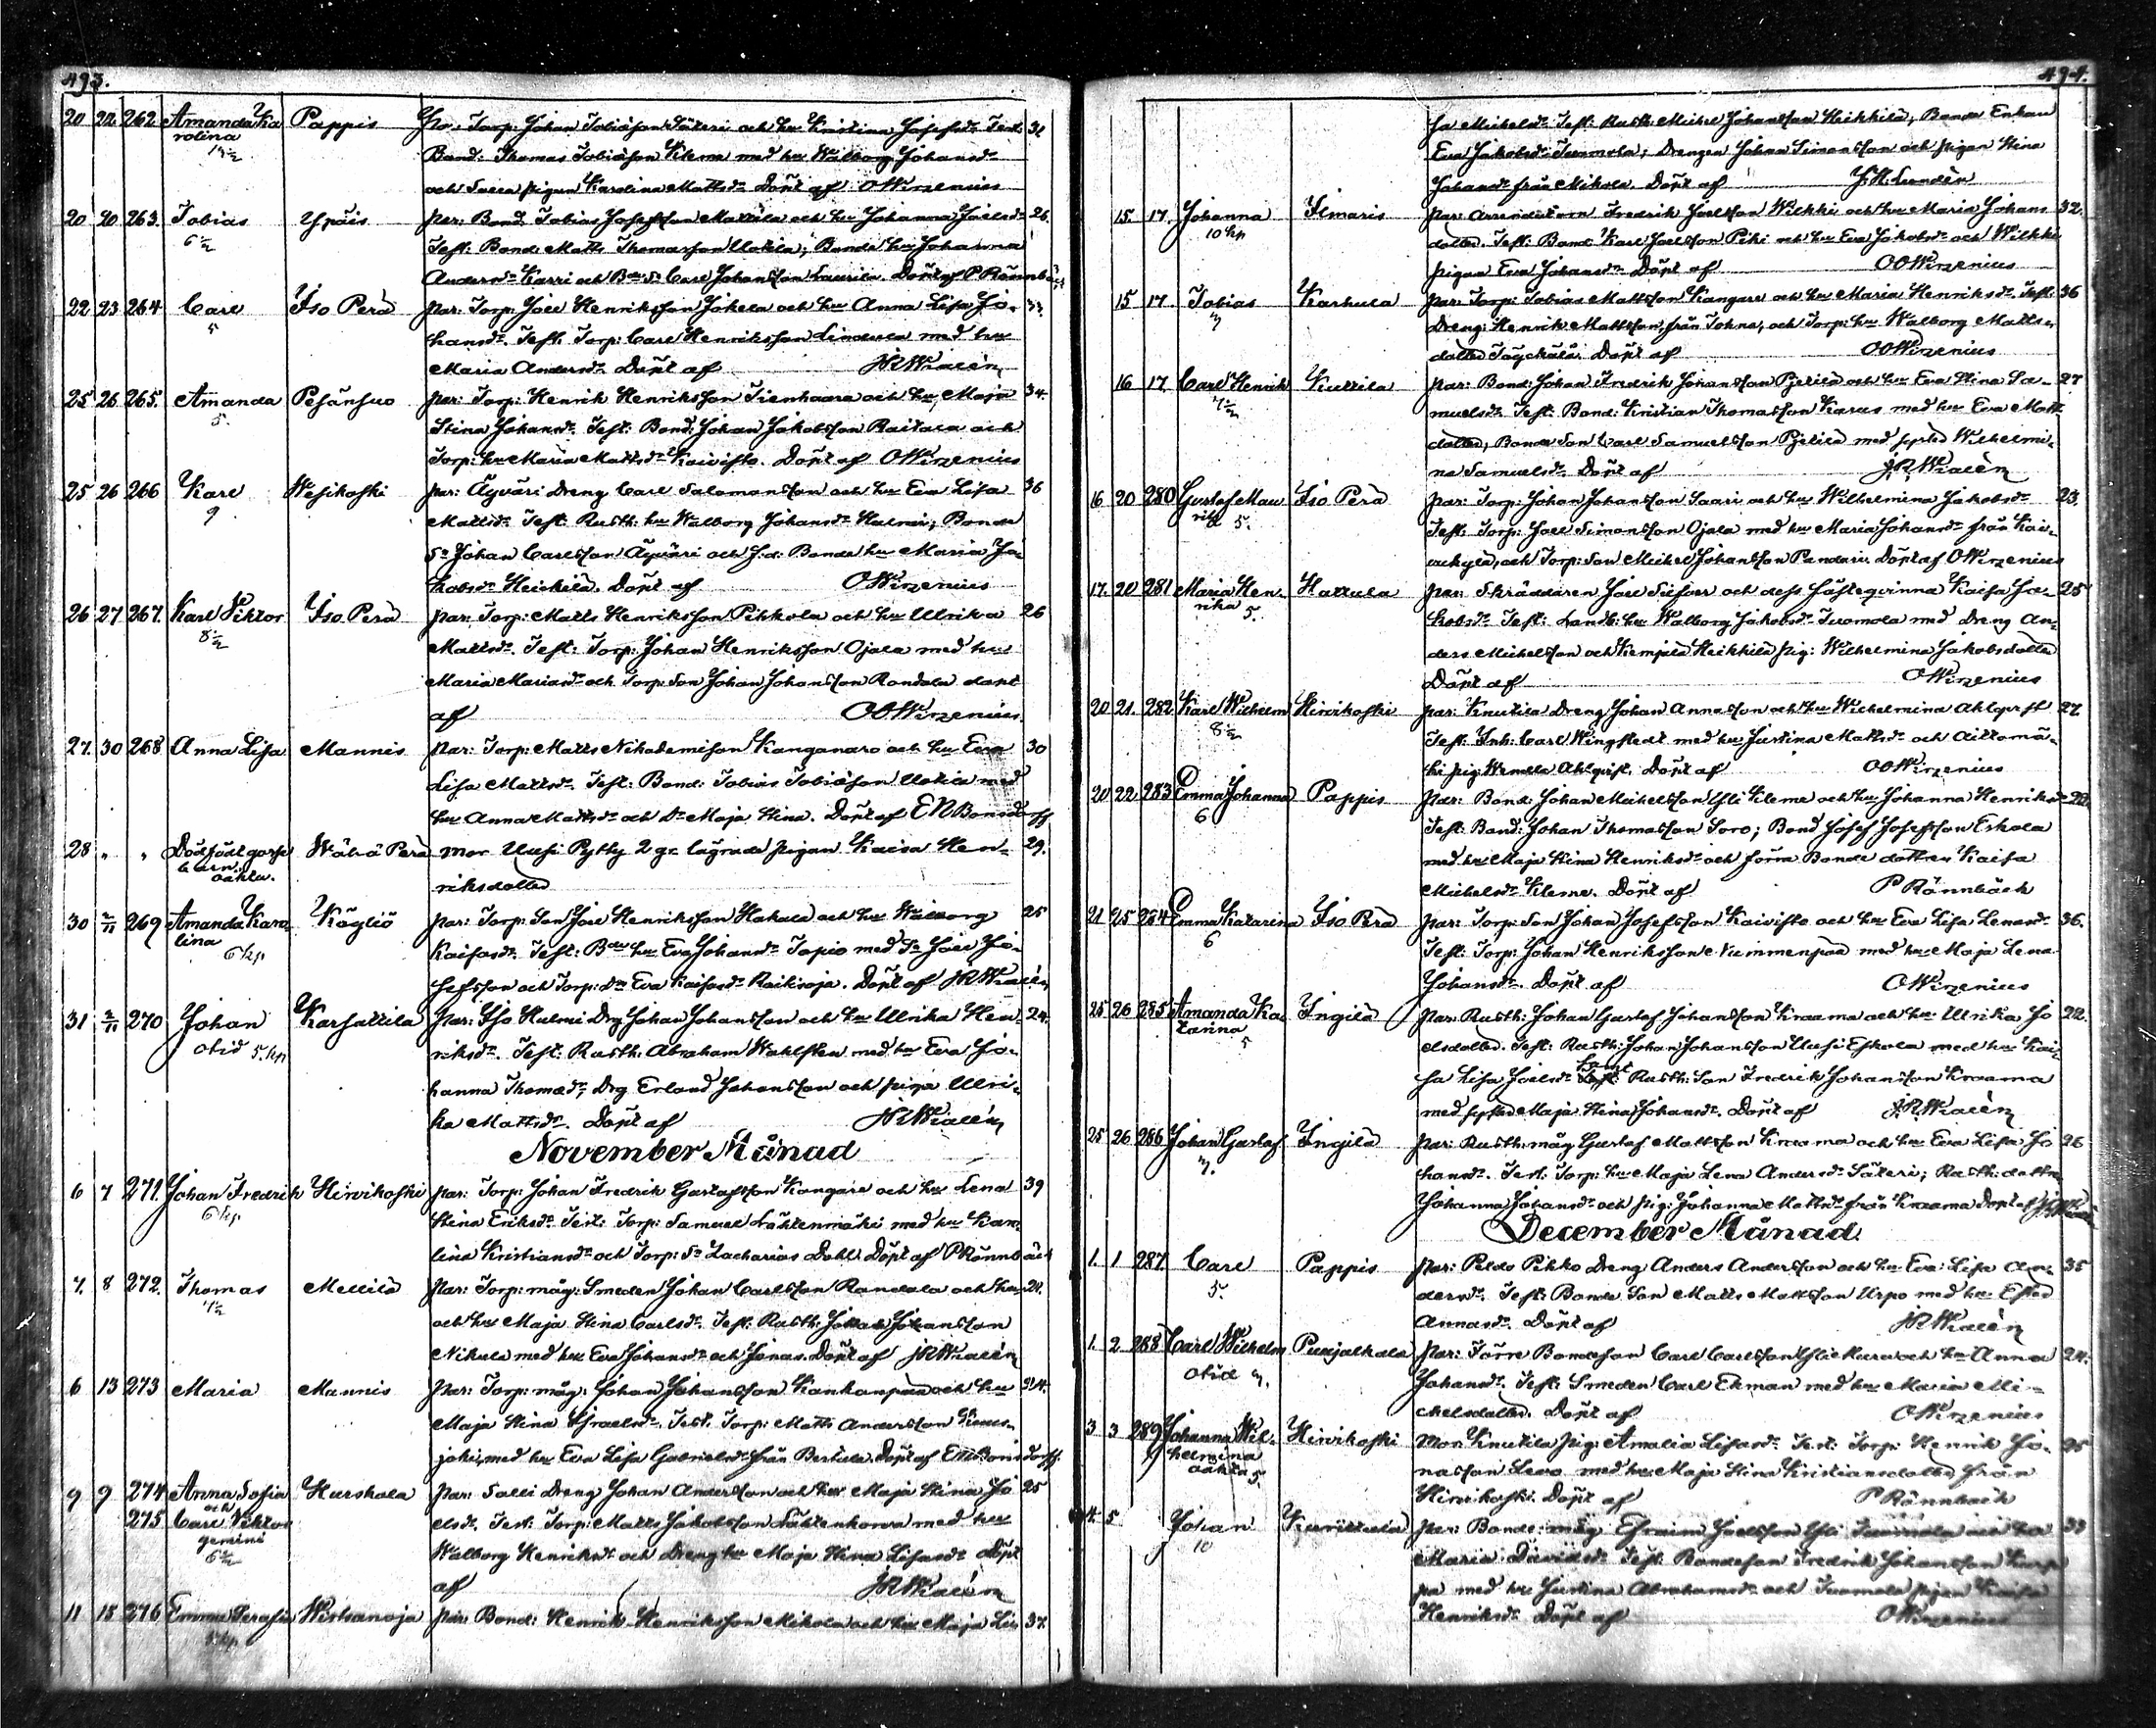 493.
20 22 262 Amanda Ka Pappis Par: Torp: Johan Tobiasson Säteri och hu Kristina Josefsdr. Test: 31
rolina Bond: Thomas Tobiasson Kleme med hu Walborg Johansdr
och Pigan Karolina Mattsdr. Döpt af OWirzenius
20 20 263. Tobias Ypäis par: Bond Tobias Josefsson Mattila och hu Johanna Joelsdr 26.
6½ Test: Bond: Matts Thomasson Uotila; Bonde hu Johanna
Andersdr Karri och Carl Johansson Laurila. Döpt af P Rönnbäck
22 23 264 Carl Iso Perä par: Torp: Joel Henriksson Jokela och hu Anna Lisa Jo-
5 hansdr. Test: Torp: Carl Henriksson Lindula med hu
Maria Andersdr Döpt af JRWialén
25 26 265. Amanda Pesänsuo par: Torp: Henrik Henriksson Tienhaara och hu Maja 34.
5. Stina Johansdr. Test: Bond: Johan Jakobsson Raitala och
Torp: hu Maria Mattsdr Koivisto. Döpt af OWirzenius
25 26 266 Karl Wesikoski par: Äyväri Dreng Carl Salomonsson och hu Eva Lisa 36
9 Mattsdr. Test: Rusth: hu Walborg Johansdr Hulmi; Bonde
Sn Johan Carlsson Äyväri och f.d. Bonde hu Maria Ja-
kobsdr Heickilä. Döpt af OWirzenius
26 27 267. Karl Viktor Iso Perä par: Torp: Matts Henriksson Pihkola och hu Ulrika 26
8½ Mattsdr. Test: Torp: Johan Henriksson Ojala med hu
Maria och Torp: Son Johan Johansson Randala döpt
af OOWirzenius.
27. 30 268 Anna Lisa Mannis par: Torp: Matts Nikodemison Kanganaro och hu Eva 30
Lisa Mattsdr. Test: Bond: Tobias Tobiasson Uotila med
hu Anna Mattsdr och Dr Maja Stina. Döpt af EN Bonsdorff
28 " " Dödfödt gosse Wähä Perä Mor Uusi Pytty 2 gr. lägrade pigan Kaisa Hen- 29.
barn. oäkta. riksdotter
30 2/11 269 Amanda Karo Köyliö par: Torp: Son Joel Henriksson Hakala och hu Walborg 25
lina Kaisasdr. Test: hu Eva Johansdr Tapio med Sn Joel Jo-
6 kp sefsson och Torp: Dr Eva Kaisasdr Raikioja. Döpt af JRWialén
31 2/11 270 Johan Karhattila Par: Iso Hulmi Drg Johan Johansson och hu Ulrika Hen- 24.
otid 5. kp riksdr. Test: Rusth: Abraham Wahlsten med hu Eva Jo-
hanna Thomasdr; Drg Erland Johansson och piga Ulri-
ka Mattsdr. Döpt af JRWialén
November Månad
6 7 271. Johan Fredrik Hirvikoski par: Torp: Johan Fredrik Gustafsson Kangare och hu Lena 39
6 kp Stina Eriksdr. Test: Torp: Samuel Lähtenmäki med hu Karo
lina Kristiansdr och Torp: Sn Zacharias Dahl. Döpt af PRönnbäck
7. 8 272. Thomas Mellilä Par: Torp: måg: Smeden Johan Carlsson Randala och hu 28.
7½ och hu Maja Stina Carlsdr. Test: Rusth: Johan Johansson
Nikula med hu Eva Johansdr och Jonas. Döpt af JRWialén
6 13 273 Maria Mannis par: Torp: måg: Johan Johansson Kankanpää och hu 34.
Maja Stina Israelsdr. Test: Torp: Matts Andersson
joki, med hu Eva Lisa Gabrielsdr från Bertula. Döpt af EN Bonsdorff.
9 9 274 Anna Sofia Hurskala Par: Salli Dreng Johan Andersson och hu Maja Stina Jo 25
275 och Carl Viktor elsdr. Test: Torp: Matts Jakobsson Lähtenkorva med hu
gemini Walborg Henriksdr och Dreng hu Maja Stina Lisasdr Döpt
6½ af JRWialén
11 18 276 Emma Serafia Wirtsanoja par: Bond: Henrik Henriksson Mikola och hu Maja Lii 37.
5 kp
494.
sa Michelsdr Test: Rusth: Michel Johansson Heikkilä, Bonde Enkan
Eva Jakobsdr Tuomola; Drengen Johan Simonsson och pigan Stina
Johansdr från Mikola. Döpt af J.H. Lundén
15 17. Johanna Simaris par: Arrendatorn Fredrik Joelsson Wilkki och hu Maria Johans 32.
10 kp dotter. Test: Bond: Karl Joelsson Piki och hu Eva Jakobsdr och Wilkki
pigan Eva Johansdr. Döpt af OOWirzenius
15 17. Tobias Karhula par: Torp: Tobias Mattsson Kangare och hu Maria Henriksdr. Test: 36
7 Dreng: Henrik Mattsson, från Tohna, och Torp: hu Walborg Matts-
dotter Döpt af OOWirzenius
16 17 Carl Henrik Kuttila par: Bond: Johan Fredrik Johansson Pjetilä och hu Eva Stina Sa- 27
7½ muelsdr. Test: Bond: Kristian Thomasson Karus med hu Eva Matts
dotter, Bonde Son Carl Samuelsson Pjetilä med syster Wilhelmi-
na Samuelsdr Döpt af JRWialén
16 20 280 Gustaf Mau Iso Perä par: Torp: Johan Johansson Saari och hu Wilhelmina Jakobsdr 23.
ritz 5. Test: Torp: Joel Simonsson Ojala med hu Maria Johansdr från Kai-
och Torp: Son Michel Johansson Döpt af OWirzenius
17. 20 281 Maria Hen- Hattula par: Skräddaren Joel och dess Fästeqvinna Kaisa Ja- 25
rika 5. kobsdr Test: Landb: hu Walborg Jakobsdr Tuomola med Dreng An-
ders Michelsson och Kempilä Heikkilä pig: Wilhelmina Jakobsdotter
Döpt af OWirzenius
20 21. 282 Karl Wilhelm Hirvikoski par: Knutila Dreng Johan Annasson och hu Wilhelmina Ahlqvist 27.
8½ Test: Inh: Carl Wingstedt med hu Justina Mattsdr och Aittomä-
ki pig: Wendla Ahlqvist. Döpt af OOWirzenius
20 22 283 Emma Johanna Pappis Par: Bond: Johan Michelsson Yli Kleme och hu Johanna Henriksdr
6 Test: Bond: Johan Thomasson Soro; Bond Josef Josefsson Eskola
med hu Maja Stina Henriksdr och förra Bonde dottren Kaisa
Michelsdr Kleme. Döpt af P Rönnbäck
21 25 284 Emma Katarina Iso Perä par: Torp: Son Johan Josefsson Koivisto och hu Eva Lisa 36.
6 Test: Torp: Johan Henriksson Nummenpää med hu Maja Lena
Johansdr. Döpt af OWirzenius
25 26 285 Amanda Ka Ingilä Par: Rusth: Johan Gustaf Johansson Kraama och hu Ulrika Jo 22.
tarina elsdotter. Test: Rusth: Johan Johansson Uusi Eskola med hu Kai-
5 sa Lisa Joelsdr Rusth: Son Fredrik Johansson Kraama
med syster Maja Stina Johansdr. Döpt af JRWialén
25 26 286 Johan Gustaf Ingilä Par: Rusth: måg Gustaf Mattsson Kraama och hu Eva Lisa Jo 26
7. hansdr. Test: Torp: hu Maja Lena Andersdr Säteri; Rusth: dottra
Johanna Johansdr och pig: Johanna Mattsdr från Kraama Döpt af JRWialén
December Månad
1. 1 287 Carl Pappis par: Peldo Pikko Dreng Anders Andersson och hu Eva Lisa An- 35
5. dersdr. Test: Bonde Son Matts Mattsson Urpo med hu Ester
Annasdr. Döpt af JRWialén
1. 2 288 Carl Wilhelm Puujalkala par: Förre Bondeson Carl Carlsson och hu Anna 24.
otid 7. Johansdr. Test: Smeden Carl Ekman med hu Maria Mi-
chelsdotter. Döpt af OWirzenius
3 3 289 Johanna Wil- Hirvikoski Mor: Knutila pig: Amalia Lisasdr. Test: Torp: Henrik Jo- 25
helmina nasson Levo med hu Maja Stina Kristiansdotter från
oäkta 5. Hirvikoski. Döpt af P Rönnbäck
4. 5 Johan Kurittula par: Bonde: måg Efraim Joelsson Yli och hu 33
10 Maria Davidsdr Test: Bondeson Fredrik Johansson
pa med hu Justina Abrahamsdr och Tuomola pigan Kaisa
Henriksdr. Döpt af OWirzenius